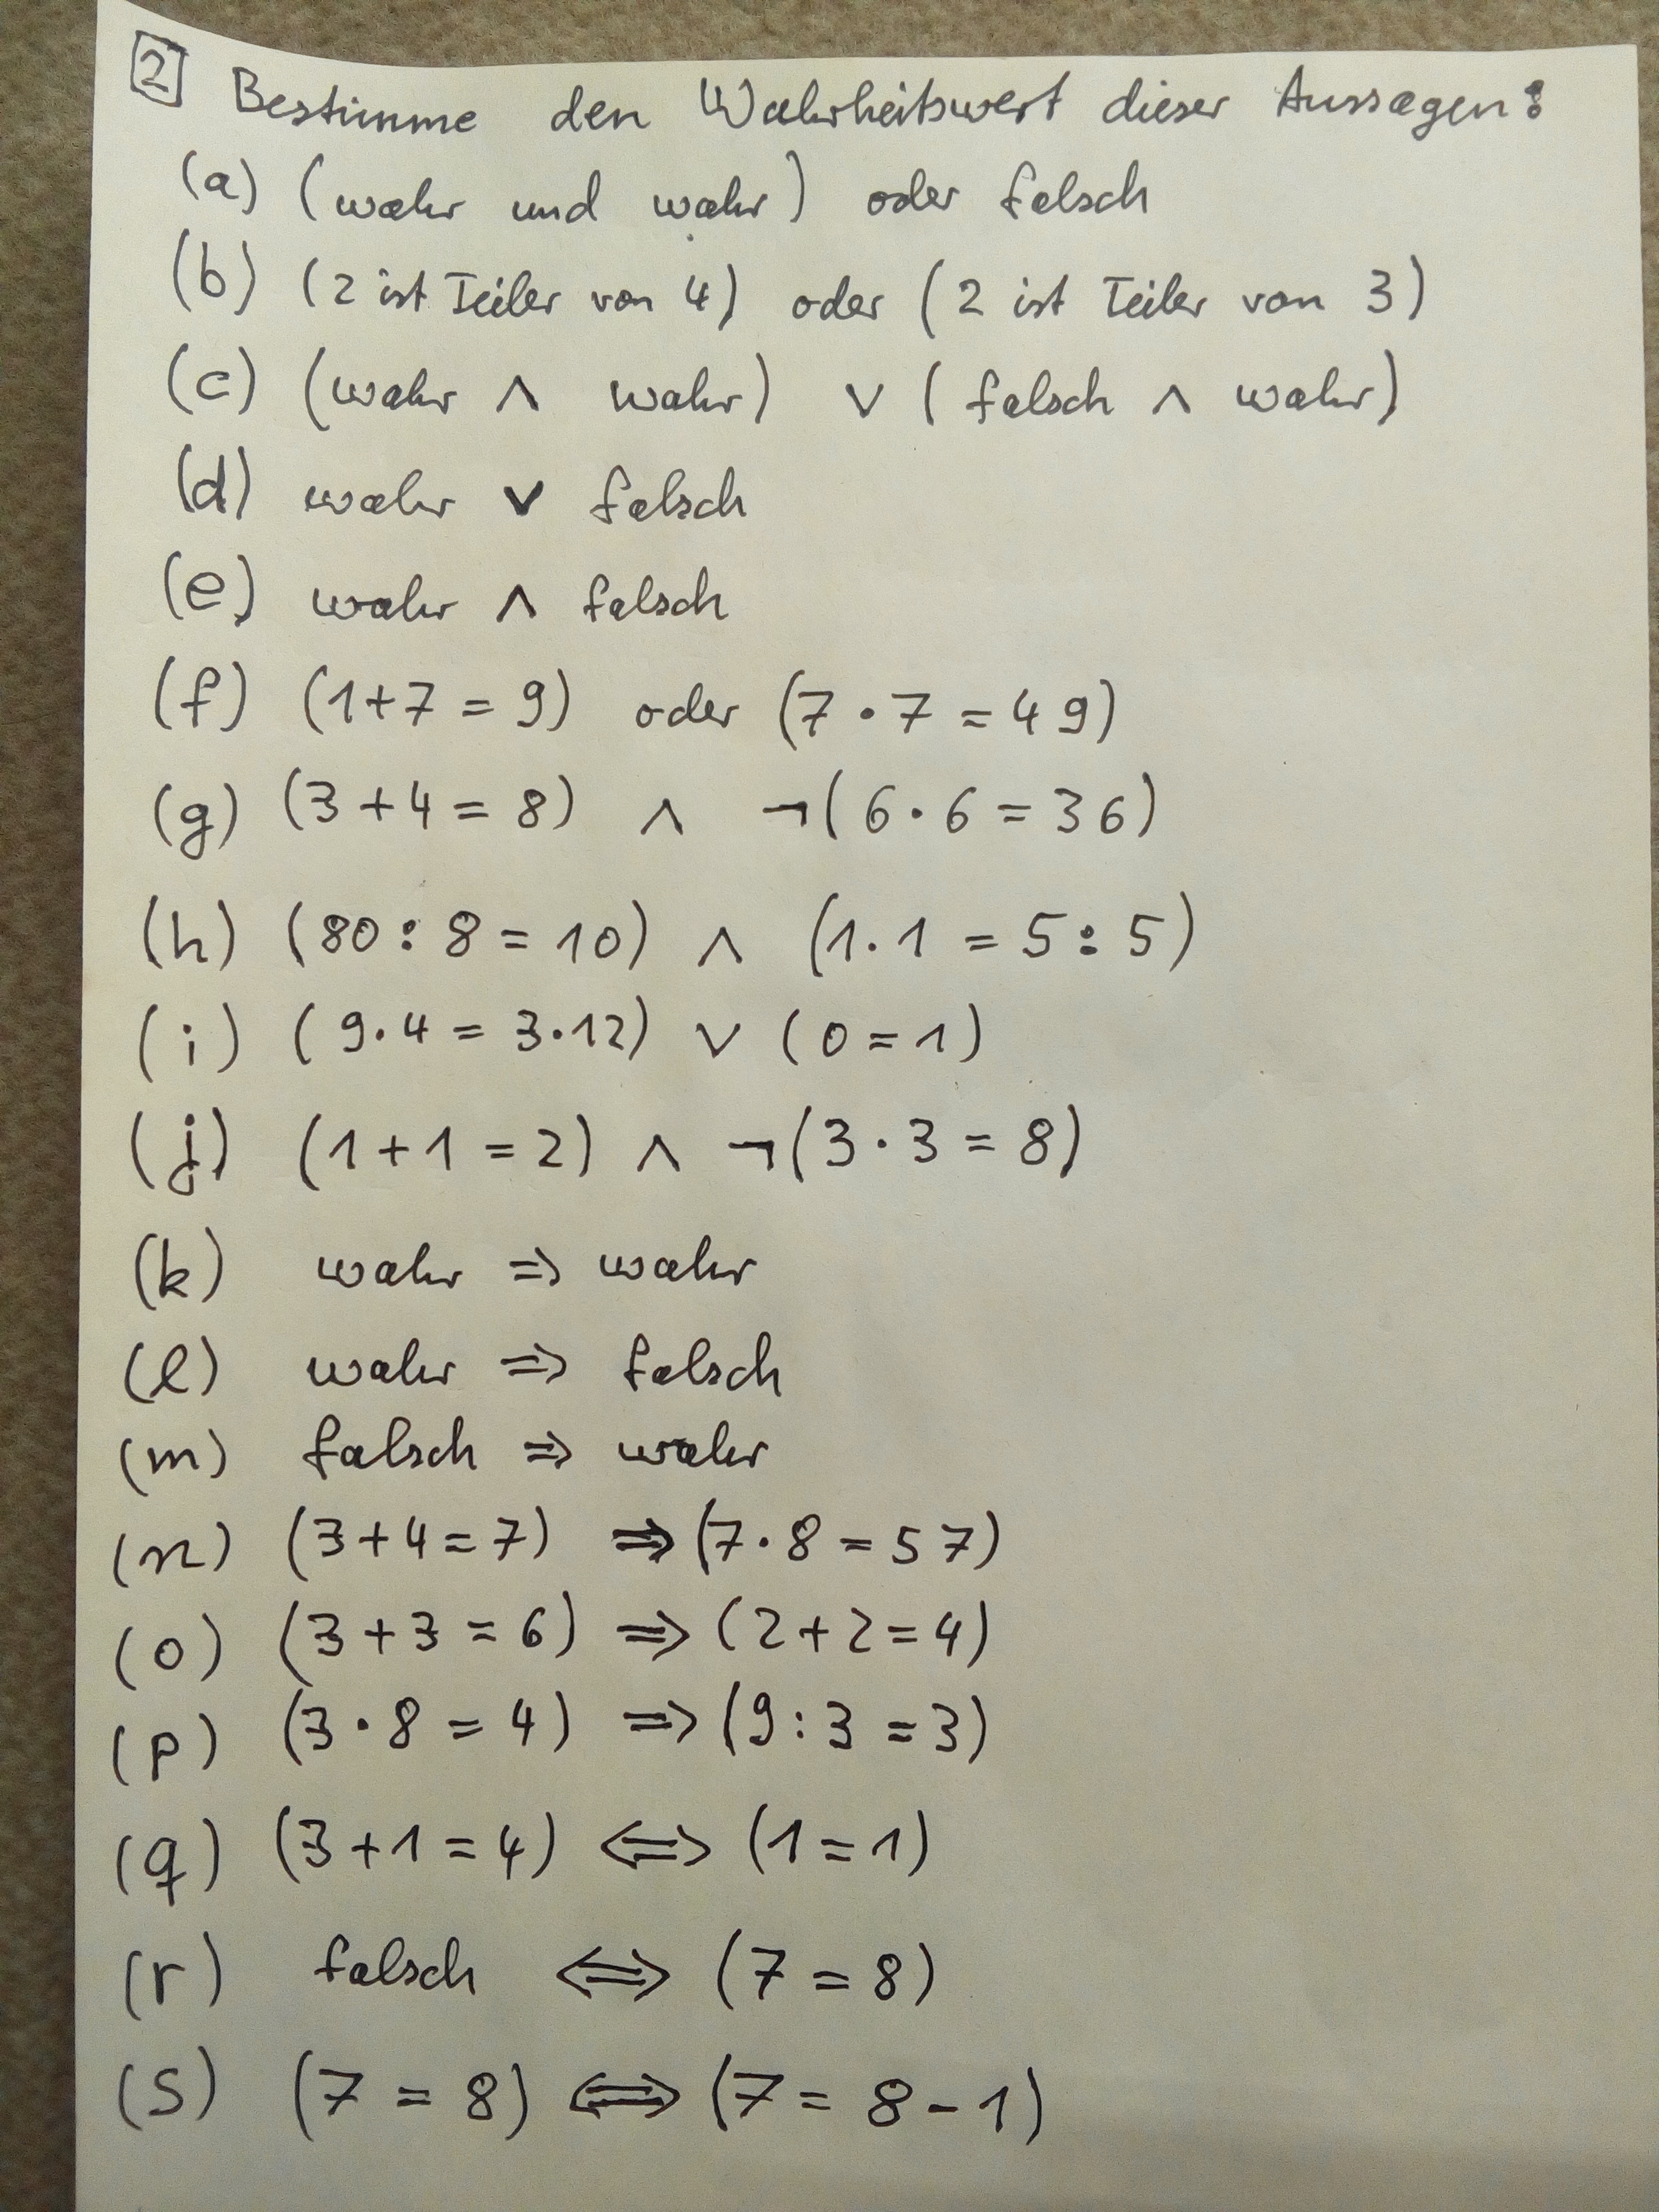 2 Bestimme den Wahrheitswert dieser Aussagen:
(a) (wahr und wahr) oder falsch
(b) (2 ist Teiler von 4) oder (2 ist Teiler von 3)
(c) (wahr ∧ wahr) ∨ (falsch ∧ wahr)
(d) wahr ∨ falsch
(e) wahr ∧ falsch
(f) (1+7 = 9) oder (7 · 7 = 49)
(g) (3 + 4 = 8) ∧ ¬(6 · 6 = 36)
(h) (80 : 8 = 10) ∧ (1 · 1 = 5 : 5)
(i) (9 · 4 = 3 · 12) ∨ (0 = 1)
(j) (1 + 1 = 2) ∧ ¬(3 · 3 = 8)
(k) wahr ⇒ wahr
(l) wahr ⇒ falsch
(m) falsch ⇒ wahr
(n) (3+4 = 7) ⇒ (7 · 8 = 57)
(o) (3 + 3 = 6) ⇒ (2 + 2 = 4)
(p) (3 · 8 = 4) ⇒ (9 : 3 = 3)
(q) (3 + 1 = 4) ⇔ (1 = 1)
(r) falsch ⇔ (7 = 8)
(s) (7 = 8) ⇔ (7 = 8 - 1)